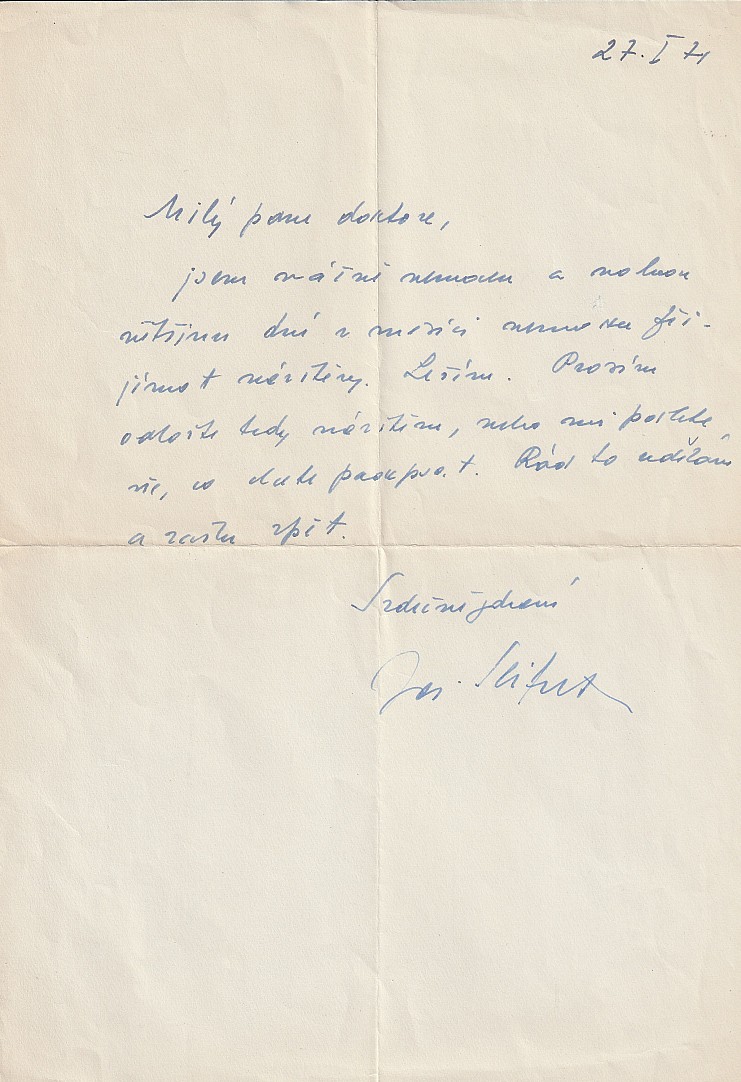 27. I 71
Milý pane doktore,
jsem vážně nemocen a
většinu dní v měsíci nemohu při-
jímat návštěvy. Ležím. Prosím
odložte tedy návštěvu, nebo mi pošlete
vše, co chcete podepsat. Rád to udělám
a zašlu zpět.
Srdečně zdraví
Jar. Seifert